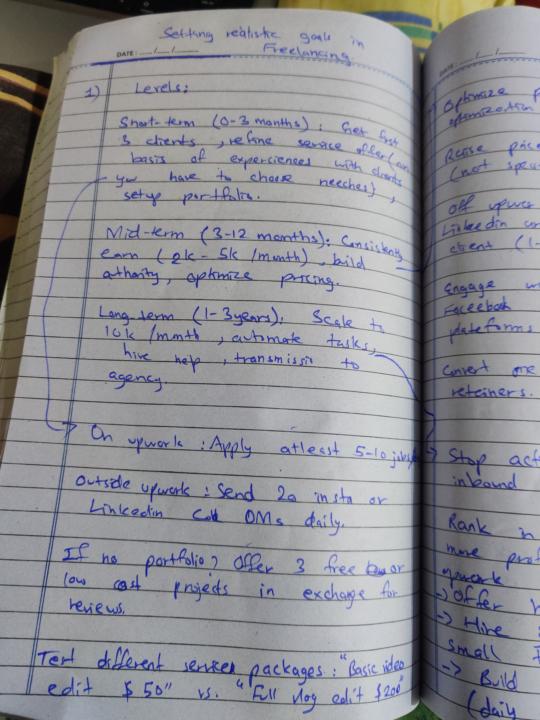 Setting realistic goals in
Freelancing
DATE: __/__/__
1) Levels:
Short-term (0-3 months): Get first
3 clients, refine service offer (on
basis of experciences with clients
you have to choose neeches),
setup portfolio.
Mid-term (3-12 months): Consistently
earn (2k - 5k /month), build
athority, optimize pricing.
Long-term (1-3 years): Scale to
10k /month, automate tasks,
hire help, transmissio to
agency.
On upwork: Apply atleast 5-10 jobs
Outside upwork: Send 20 insta or
Linkedin Cold DMs daily.
If no portfolio? Offer 3 free or
low cost projects in exchange for
reviews.
Test different services packages: "Basic video
edit $50" vs. "Full vlog edit $200"
DATE:
Optimize p
optimization
Raise price
(not spe
Off upwor
Linkedin
client (1-
Engage w
Facebook
plateforms
Convert one
retainers.
Stop act
inbound
Rank in
more prof
upwork
-> Offer h
-> Hire
small
-> Build
(daily